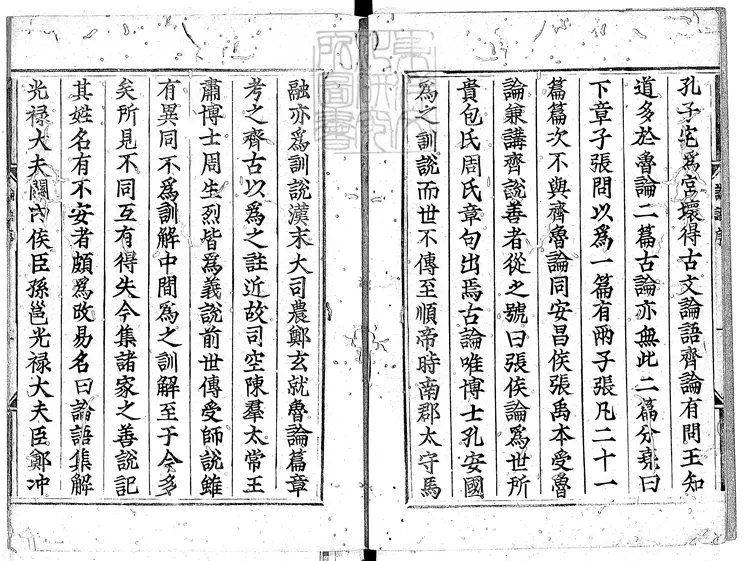 孔子宅爲宮壞得古文論語齊論有問王知
道多於魯論二篇古論亦無此二篇分堯曰
下章子張問以爲一篇有兩子張凡二十一
篇篇次不與齊魯論同安昌侯張禹本受魯
論兼講齊說善者從之號曰張侯論爲世所
貴包氏周氏章句出焉古論唯博士孔安國
爲之訓說而世不傳至順帝時南郡太守馬
融亦爲訓說漢末大司農鄭玄就魯論篇章
考之齊古以爲之註近故司空陳羣太常王
肅博士周生烈皆爲義說前世傳受師說雖
有異同不爲訓解中間爲之訓解至于今多
矣所見不同互有得失今集諸家之善說記
其姓名有不安者頗爲改易名曰論語集解
光祿大夫關内侯臣孫邕光祿大夫臣鄭冲